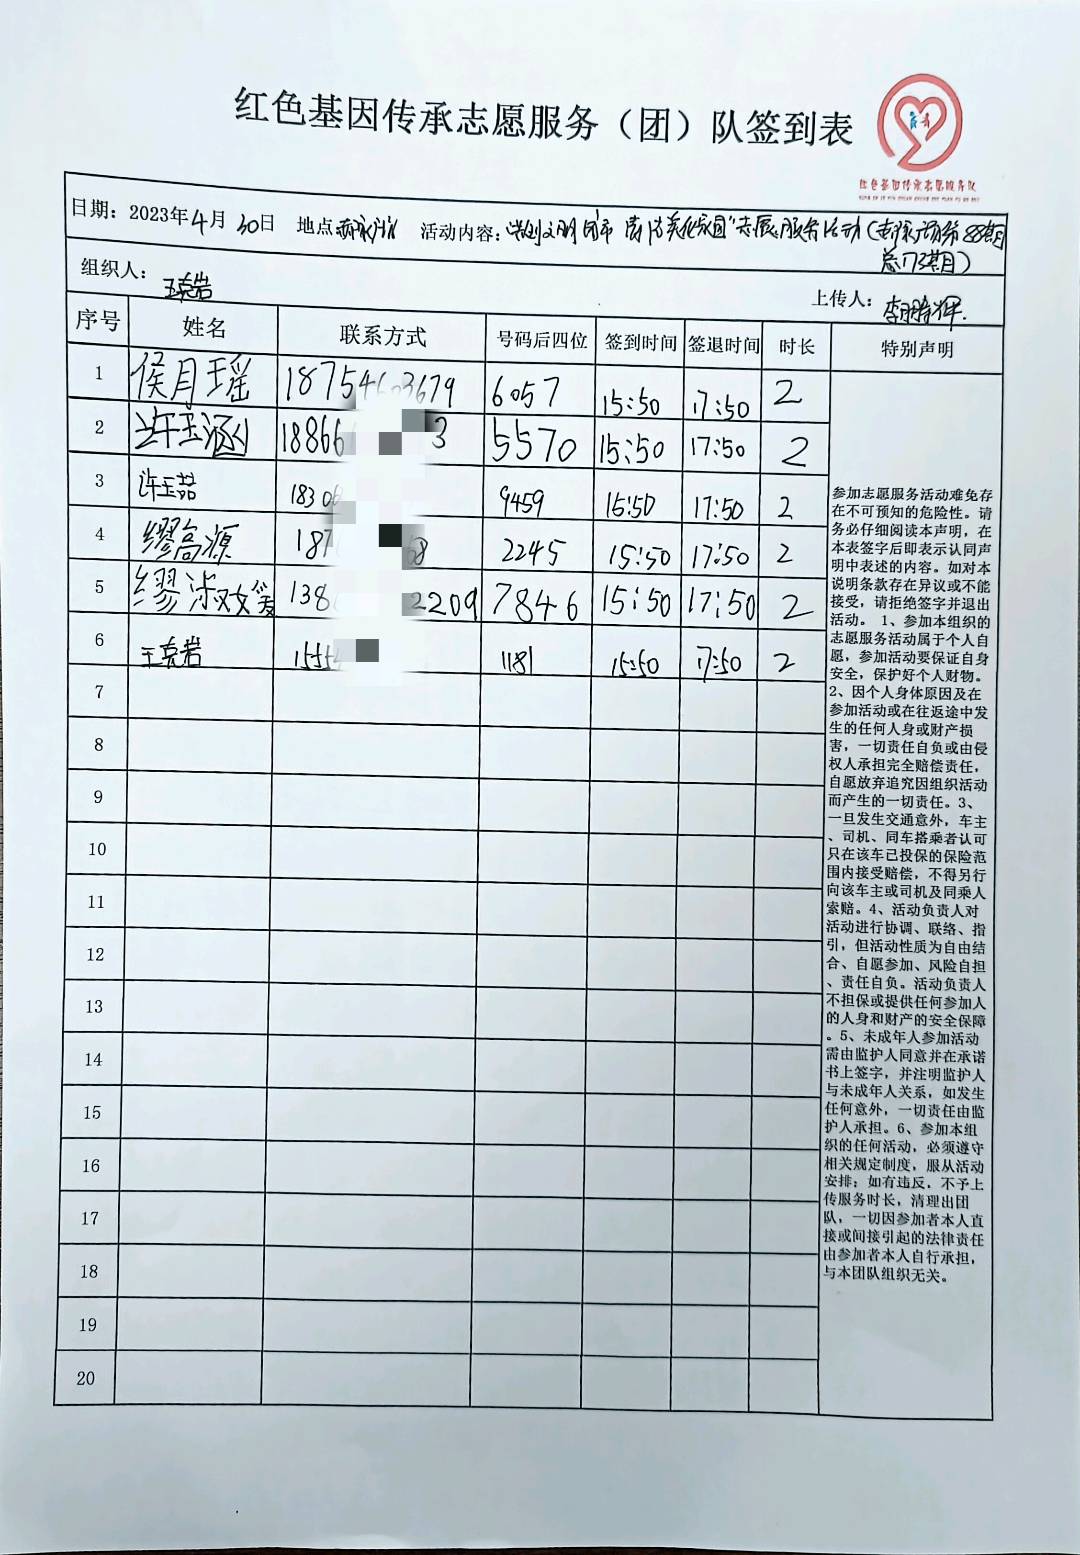 红色基因传承志愿服务（团）队签到表
红色基因传承志愿服务队
日期：2023年4月30日 地点 活动内容：
组织人：王克岩
上传人：李鹏辉
序号 姓名 联系方式 号码后四位 签到时间 签退时间 时长 特别声明
1 侯月瑶 6057 15:50 17:50 2
2 许玉涵 18866 3 5570 15:50 17:50 2
3 许玉喆 9459 15:50 17:50 2
4 缪高源 187 68 2245 15:50 17:50 2
5 缪淑媛 138 2209 7846 15:50 17:50 2
6 王克岩 1181 15:50 17:50 2
7
8
9
10
11
12
13
14
15
16
17
18
19
20
参加志愿服务活动难免存
在不可预知的危险性。请
务必仔细阅读本声明，在
本表签字后即表示认同声
明中表述的内容。如对本
说明条款存在异议或不能
接受，请拒绝签字并退出
活动。 1、参加本组织的
志愿服务活动属于个人自
愿，参加活动要保证自身
安全，保护好个人财物。
2、因个人身体原因及在
参加活动或在往返途中发
生的任何人身或财产损
害，一切责任自负或由侵
权人承担完全赔偿责任，
自愿放弃追究因组织活动
而产生的一切责任。3、
一旦发生交通意外，车主
、司机、同车搭乘者认可
只在该车已投保的保险范
围内接受赔偿，不得另行
向该车主或司机及同乘人
索赔。4、活动负责人对
活动进行协调、联络、指
引，但活动性质为自由结
合、自愿参加、风险自担
、责任自负。活动负责人
不担保或提供任何参加人
的人身和财产的安全保障
。5、未成年人参加活动
需由监护人同意并在承诺
书上签字，并注明监护人
与未成年人关系，如发生
任何意外，一切责任由监
护人承担。6、参加本组
织的任何活动，必须遵守
相关规定制度，服从活动
安排；如有违反，不予上
传服务时长，清理出团
队，一切因参加者本人直
接或间接引起的法律责任
由参加者本人自行承担，
与本团队组织无关。